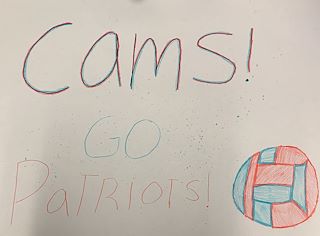 Cams!
GO
PATRIOTS!